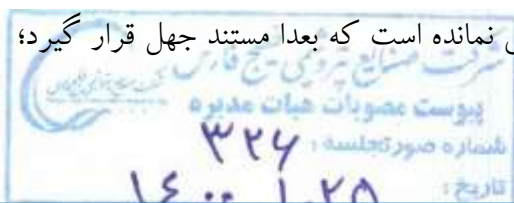 نمانده است که بعدا مستند جهل قرار گیرد؛
شرکت صنایع پتروشیمی خلیج فارس
پیوست مصوبات هیات مدیره
شماره صورتجلسه: ۳۲۶
تاریخ: